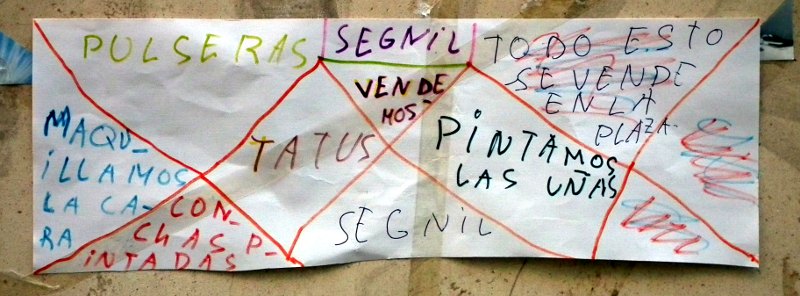 PULSERAS
SEGNIL
VENDE
MOS-
TODO ESTO
SE VENDE
EN LA
PLAZA-
MAQU-
iLLAMOS
LA CA-
RA
TATUS
PiNTAMOS
LAS UÑAS
CON-
CHAS P-
iNTADAS
SEGNIL